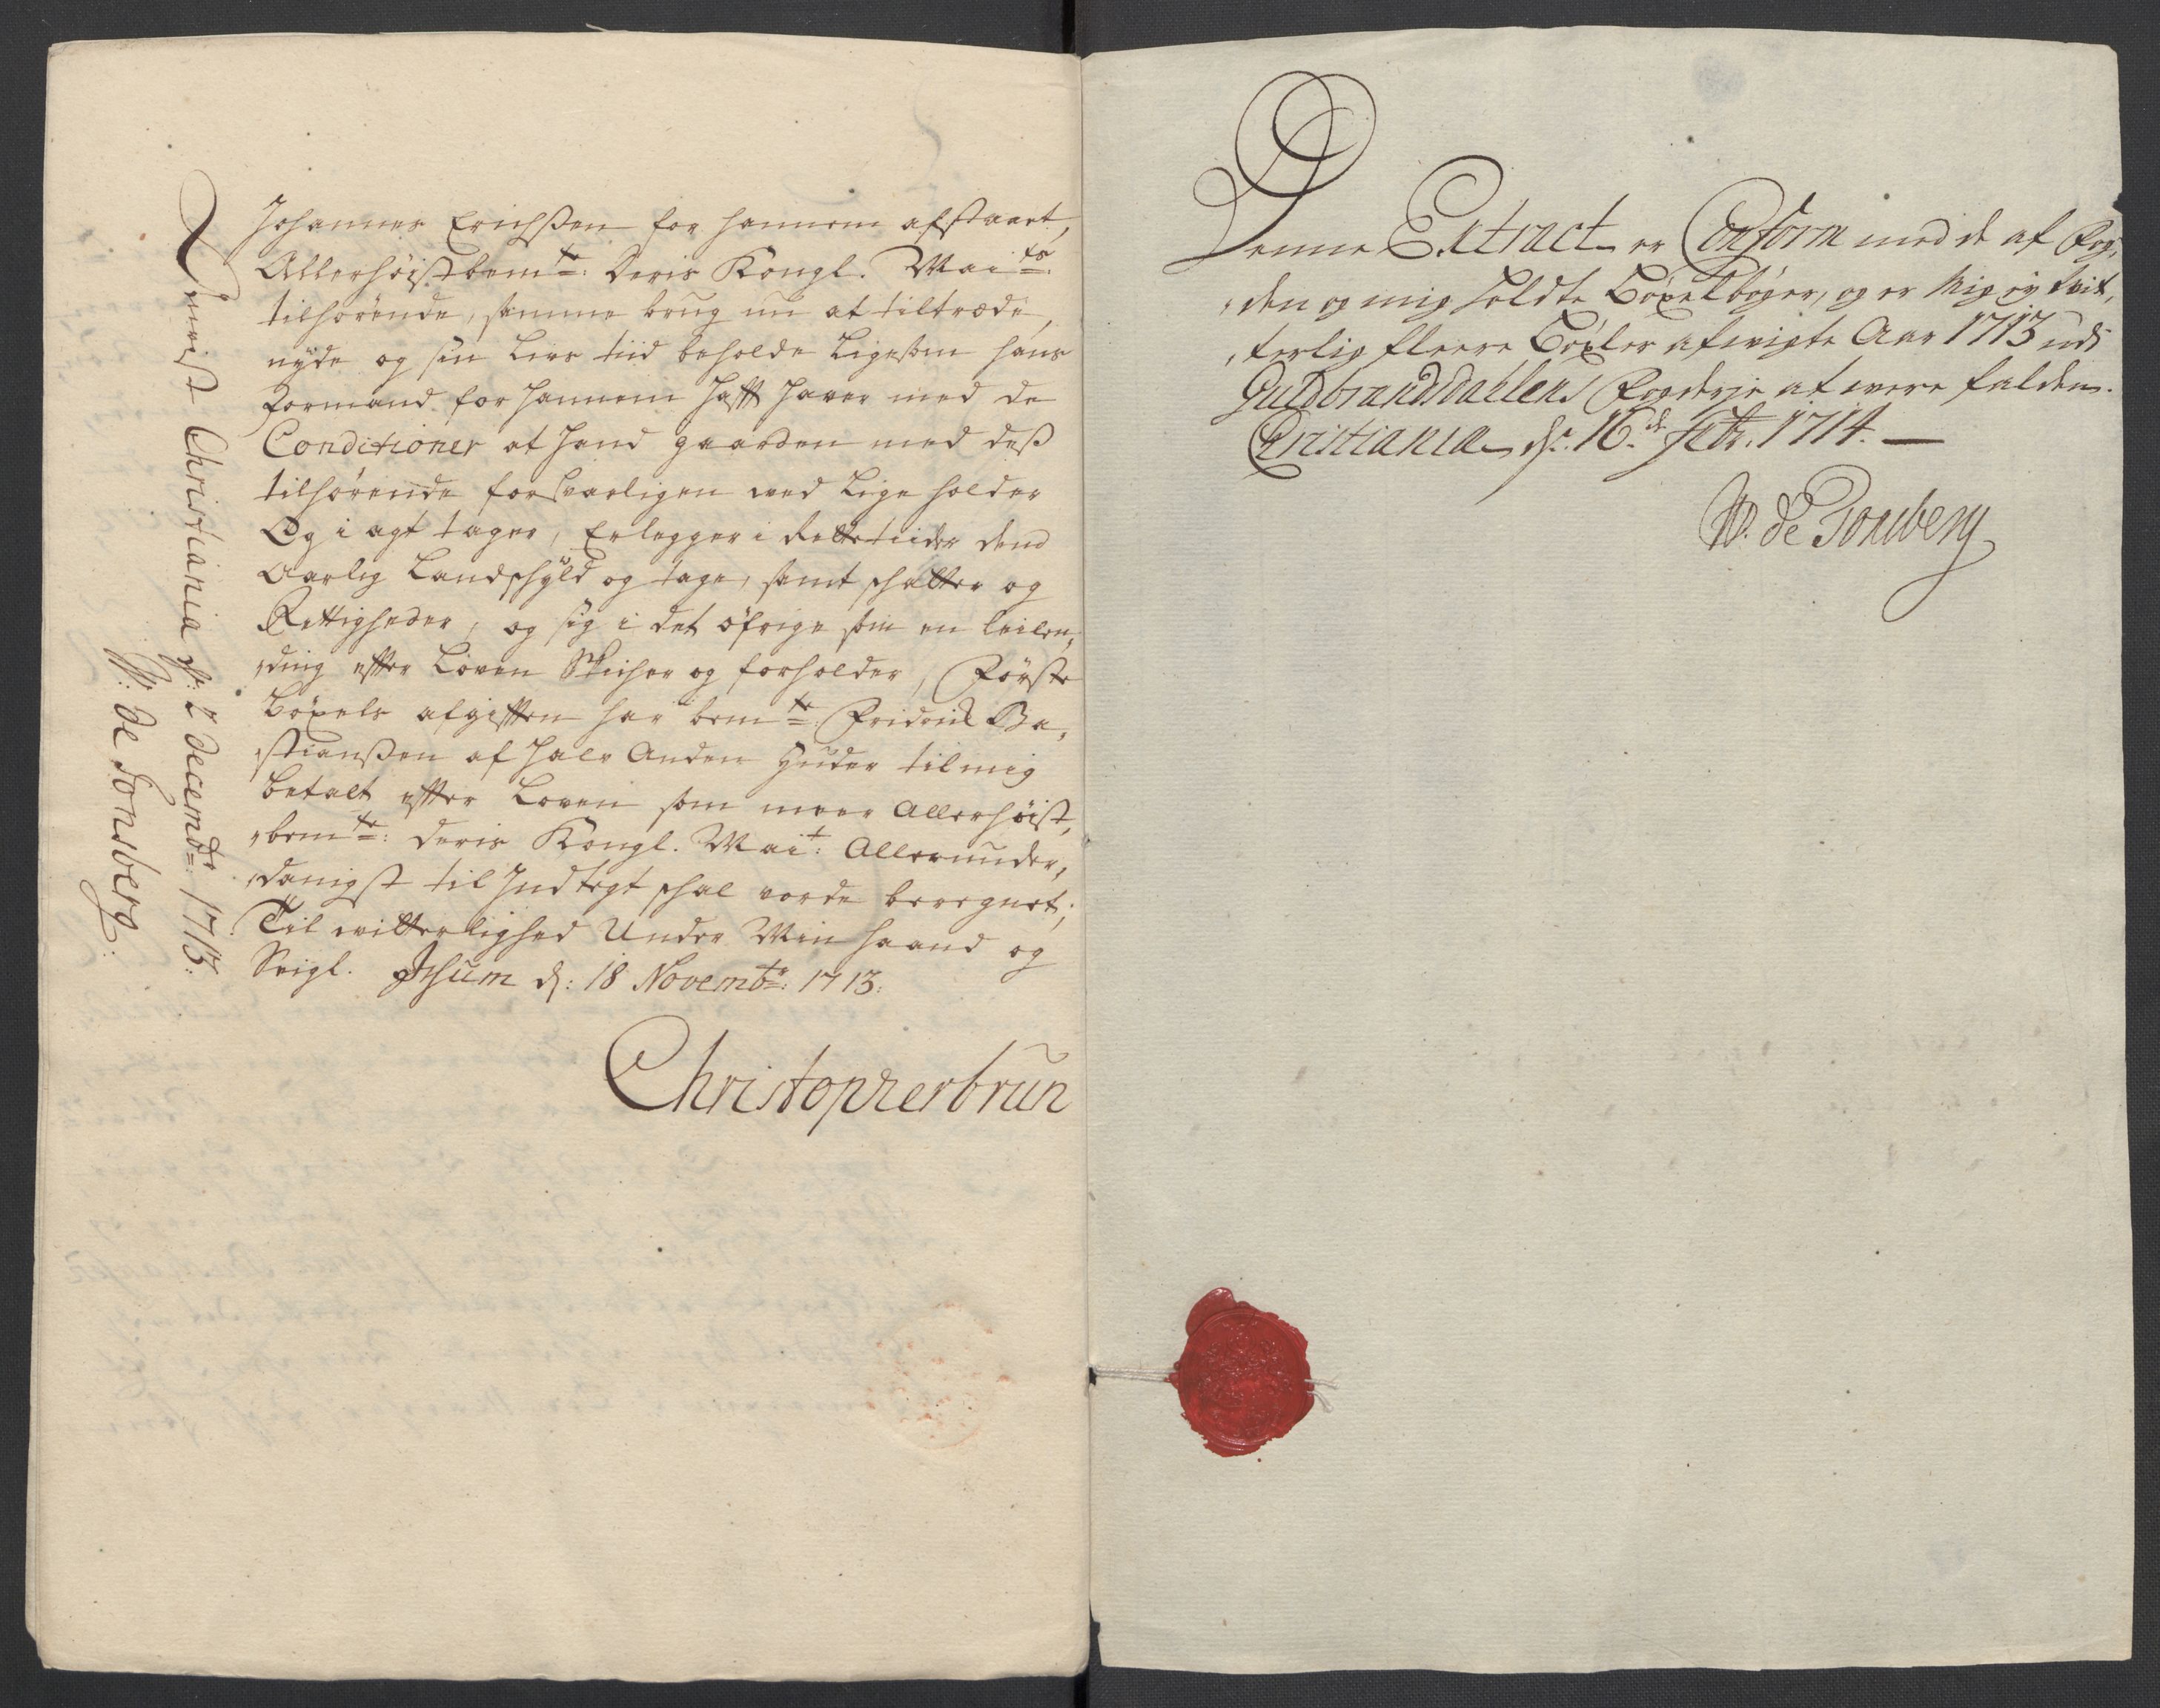 Johannes Erichßen for hannem afstaaet,
Allerhøistbemte: Deris Kongl. Maits:
tilhørende, samme brug nu at tiltræde,
nyde og sin Livs tiid beholde Ligesom hans
Formand for hannem hafft haver med de
Conditioner at hand gaarden med deß
tilhørende forsvarligen ved Lige holder
Og i agt tager, Erlegger i rette tiider dend
Aarlig Landschyld og tage, samt schatter og
Rettigheder, og sig i det øfrige som en leilen,
,ding effter Loven Schicher og forholder, Første
Böxels afgifften har bemte: Friderich Ba,
,stianßen af halv Anden Huder til mig
betalt effter Loven som meer Allerhøist,
,bemte: Deris Kongl. Mait: Allerunder,
,danigst til Indtegt schal vorde beregnet;
Til vitterlighed Under Min haand og
Seigl. Jsum d: 18 Novembr: 1713:
Christopher brun
Anvist Christiania d: 2 Decembr: 1713:
W: de Tonsberg:
Denne Extract er Conform med de af Fog,
,den og mig holdte Böxelbøger, og er mig ey vit,
,terlig fleere Böxler afvigte Aar 1713 udi
Guldbrandsdahlens Fogderje at vere falden.
Christiania d: 16de Febr: 1714.
W. de Tonsberg